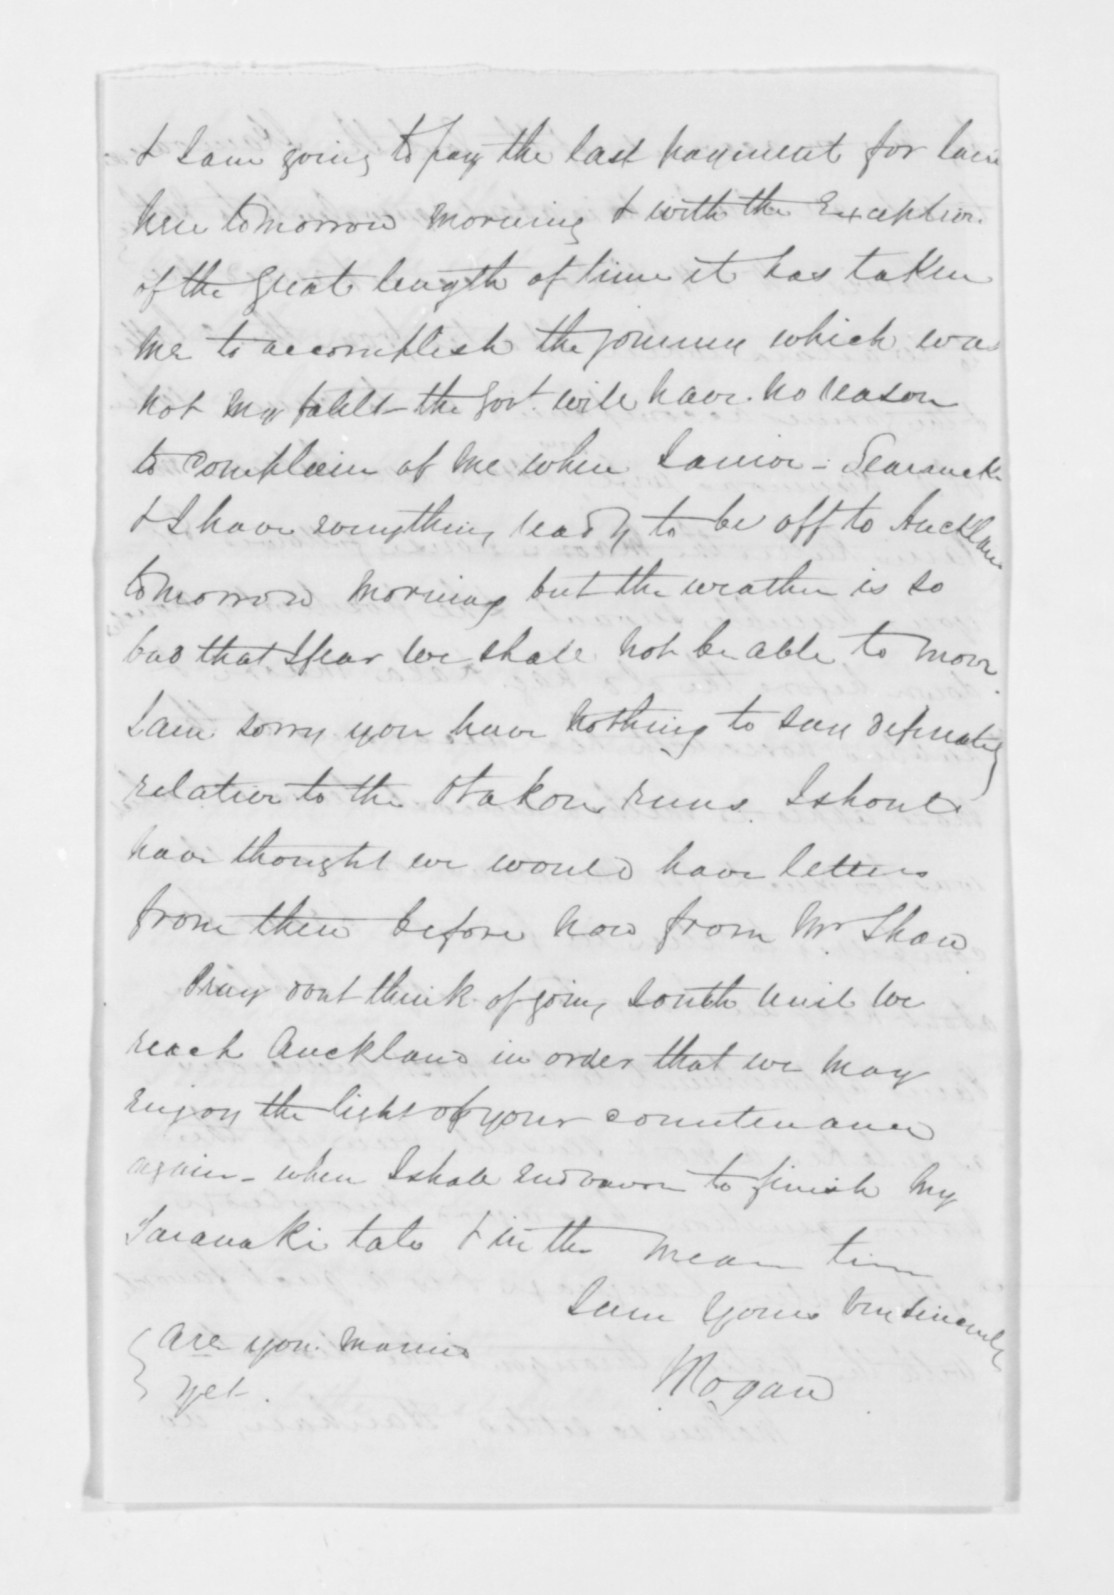 & I am going to pay the last payment for land
here tomorrow morning & with the Exception
of the great length of time it has taken
me to accomplish the journey which was
not my fault - the Govt. will have no reason
to complain of me when I arrive - Searancke
& I have everything ready to be off to Auckland
tomorrow morning but the weather is so
bad that I fear we shall not be able to move.
I am sorry you have nothing to say definately
relative to the Otakou runs. I should
have thought we would have letters
from there before now from Mr Shaw
Pray dont think of going South until we
reach Auckland in order that we may
enjoy the light of your countenance
again - when I shall endeavour to finish my
Taranaki tale & in the mean time
I am Yours very sincerely
Rogan
{ Are you married
yet.